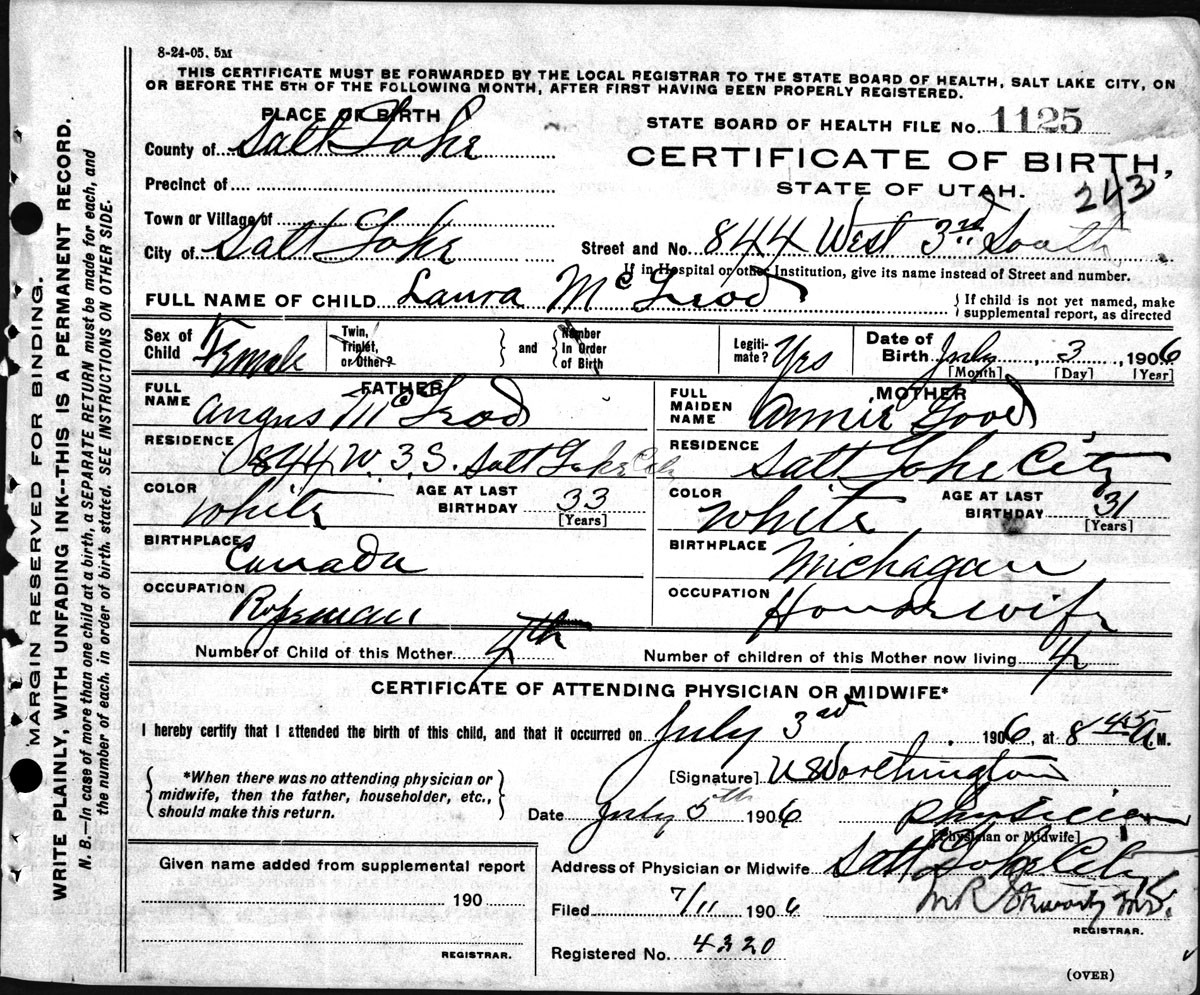 8-24-05. 5M
THIS CERTIFICATE MUST BE FORWARDED BY THE LOCAL REGISTRAR TO THE STATE BOARD OF HEALTH, SALT LAKE CITY, ON
OR BEFORE THE 5TH OF THE FOLLOWING MONTH, AFTER FIRST HAVING BEEN PROPERLY REGISTERED.
PLACE OF BIRTH
STATE BOARD OF HEALTH FILE No. 1125
County of Salt Lake
CERTIFICATE OF BIRTH,
STATE OF UTAH.
243
Precinct of
Town or Village of
City of Salt Lake
Street and No. 844 West 3rd South
If in Hospital or other Institution, give its name instead of Street and number.
FULL NAME OF CHILD Laura McLeod
If child is not yet named, make
supplemental report, as directed
Sex of Child Female
Twin, Triplet, or Other?
and
Number In Order of Birth
Legiti-mate? Yes
Date of Birth July, 3, 1906
[Month] [Day] [Year]
FATHER
FULL NAME Angus McLeod
RESIDENCE 844 W. 3 S. Salt Lake City
COLOR White
AGE AT LAST BIRTHDAY 33
[Years]
BIRTHPLACE Canada
OCCUPATION Ropeman
MOTHER
FULL MAIDEN NAME Annie Good
RESIDENCE Salt Lake City
COLOR White
AGE AT LAST BIRTHDAY 31
[Years]
BIRTHPLACE Michagan
OCCUPATION Housewife
Number of Child of this Mother 4th
Number of children of this Mother now living 4
CERTIFICATE OF ATTENDING PHYSICIAN OR MIDWIFE*
I hereby certify that I attended the birth of this child, and that it occurred on July 3rd, 1906, at 8 45 A.M.
*When there was no attending physician or
midwife, then the father, householder, etc.,
should make this return.
[Signature] Worthington
Date July 5th 1906 Physician
[Physician or Midwife]
Given name added from supplemental report
190
REGISTRAR.
Address of Physician or Midwife Salt Lake City
Filed 7/11 1906
M.D.
REGISTRAR.
Registered No. 4320
(OVER)
MARGIN RESERVED FOR BINDING.
WRITE PLAINLY, WITH UNFADING INK--THIS IS A PERMANENT RECORD.
N. B.—In case of more than one child at a birth, a SEPARATE RETURN must be made for each, and
the number of each, in order of birth, stated. SEE INSTRUCTIONS ON OTHER SIDE.